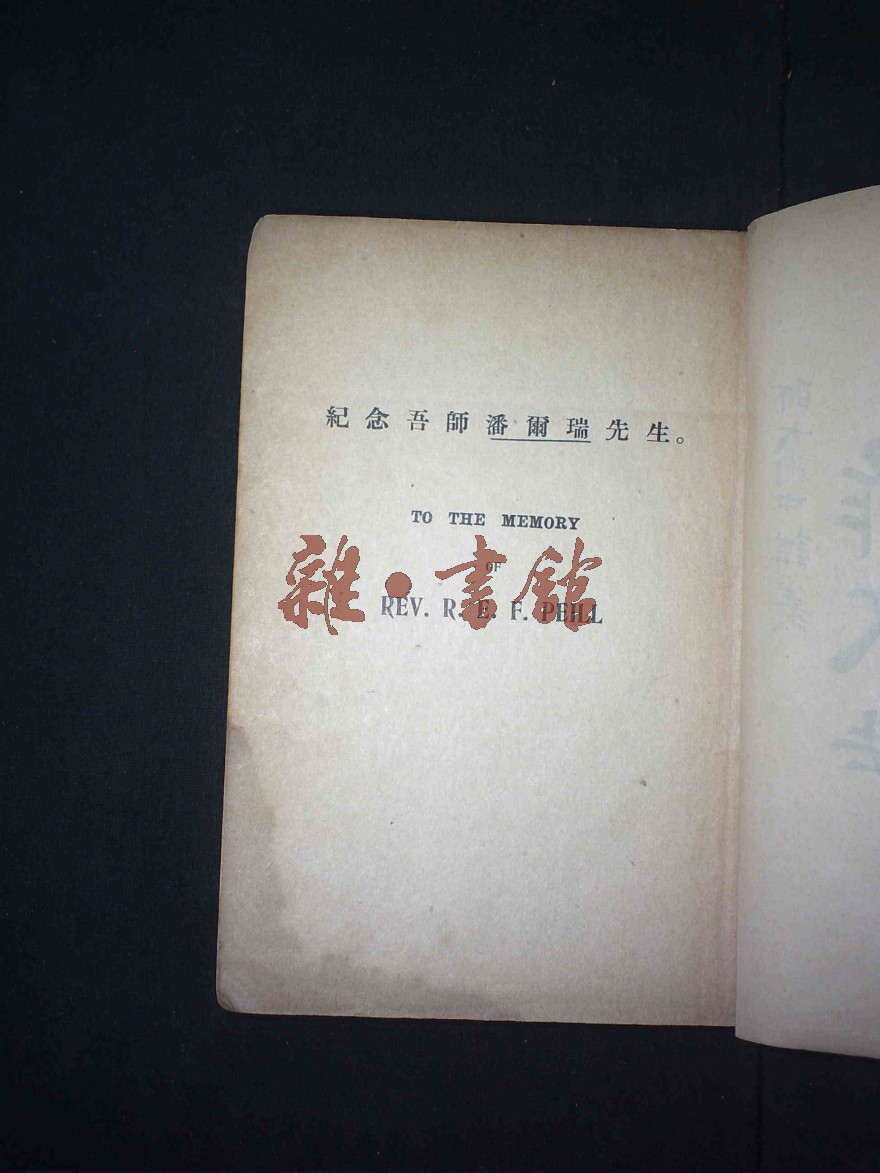 紀念吾師潘爾瑞先生。
TO THE MEMORY
OF
REV. R. E. F. PEILL
雜·書館